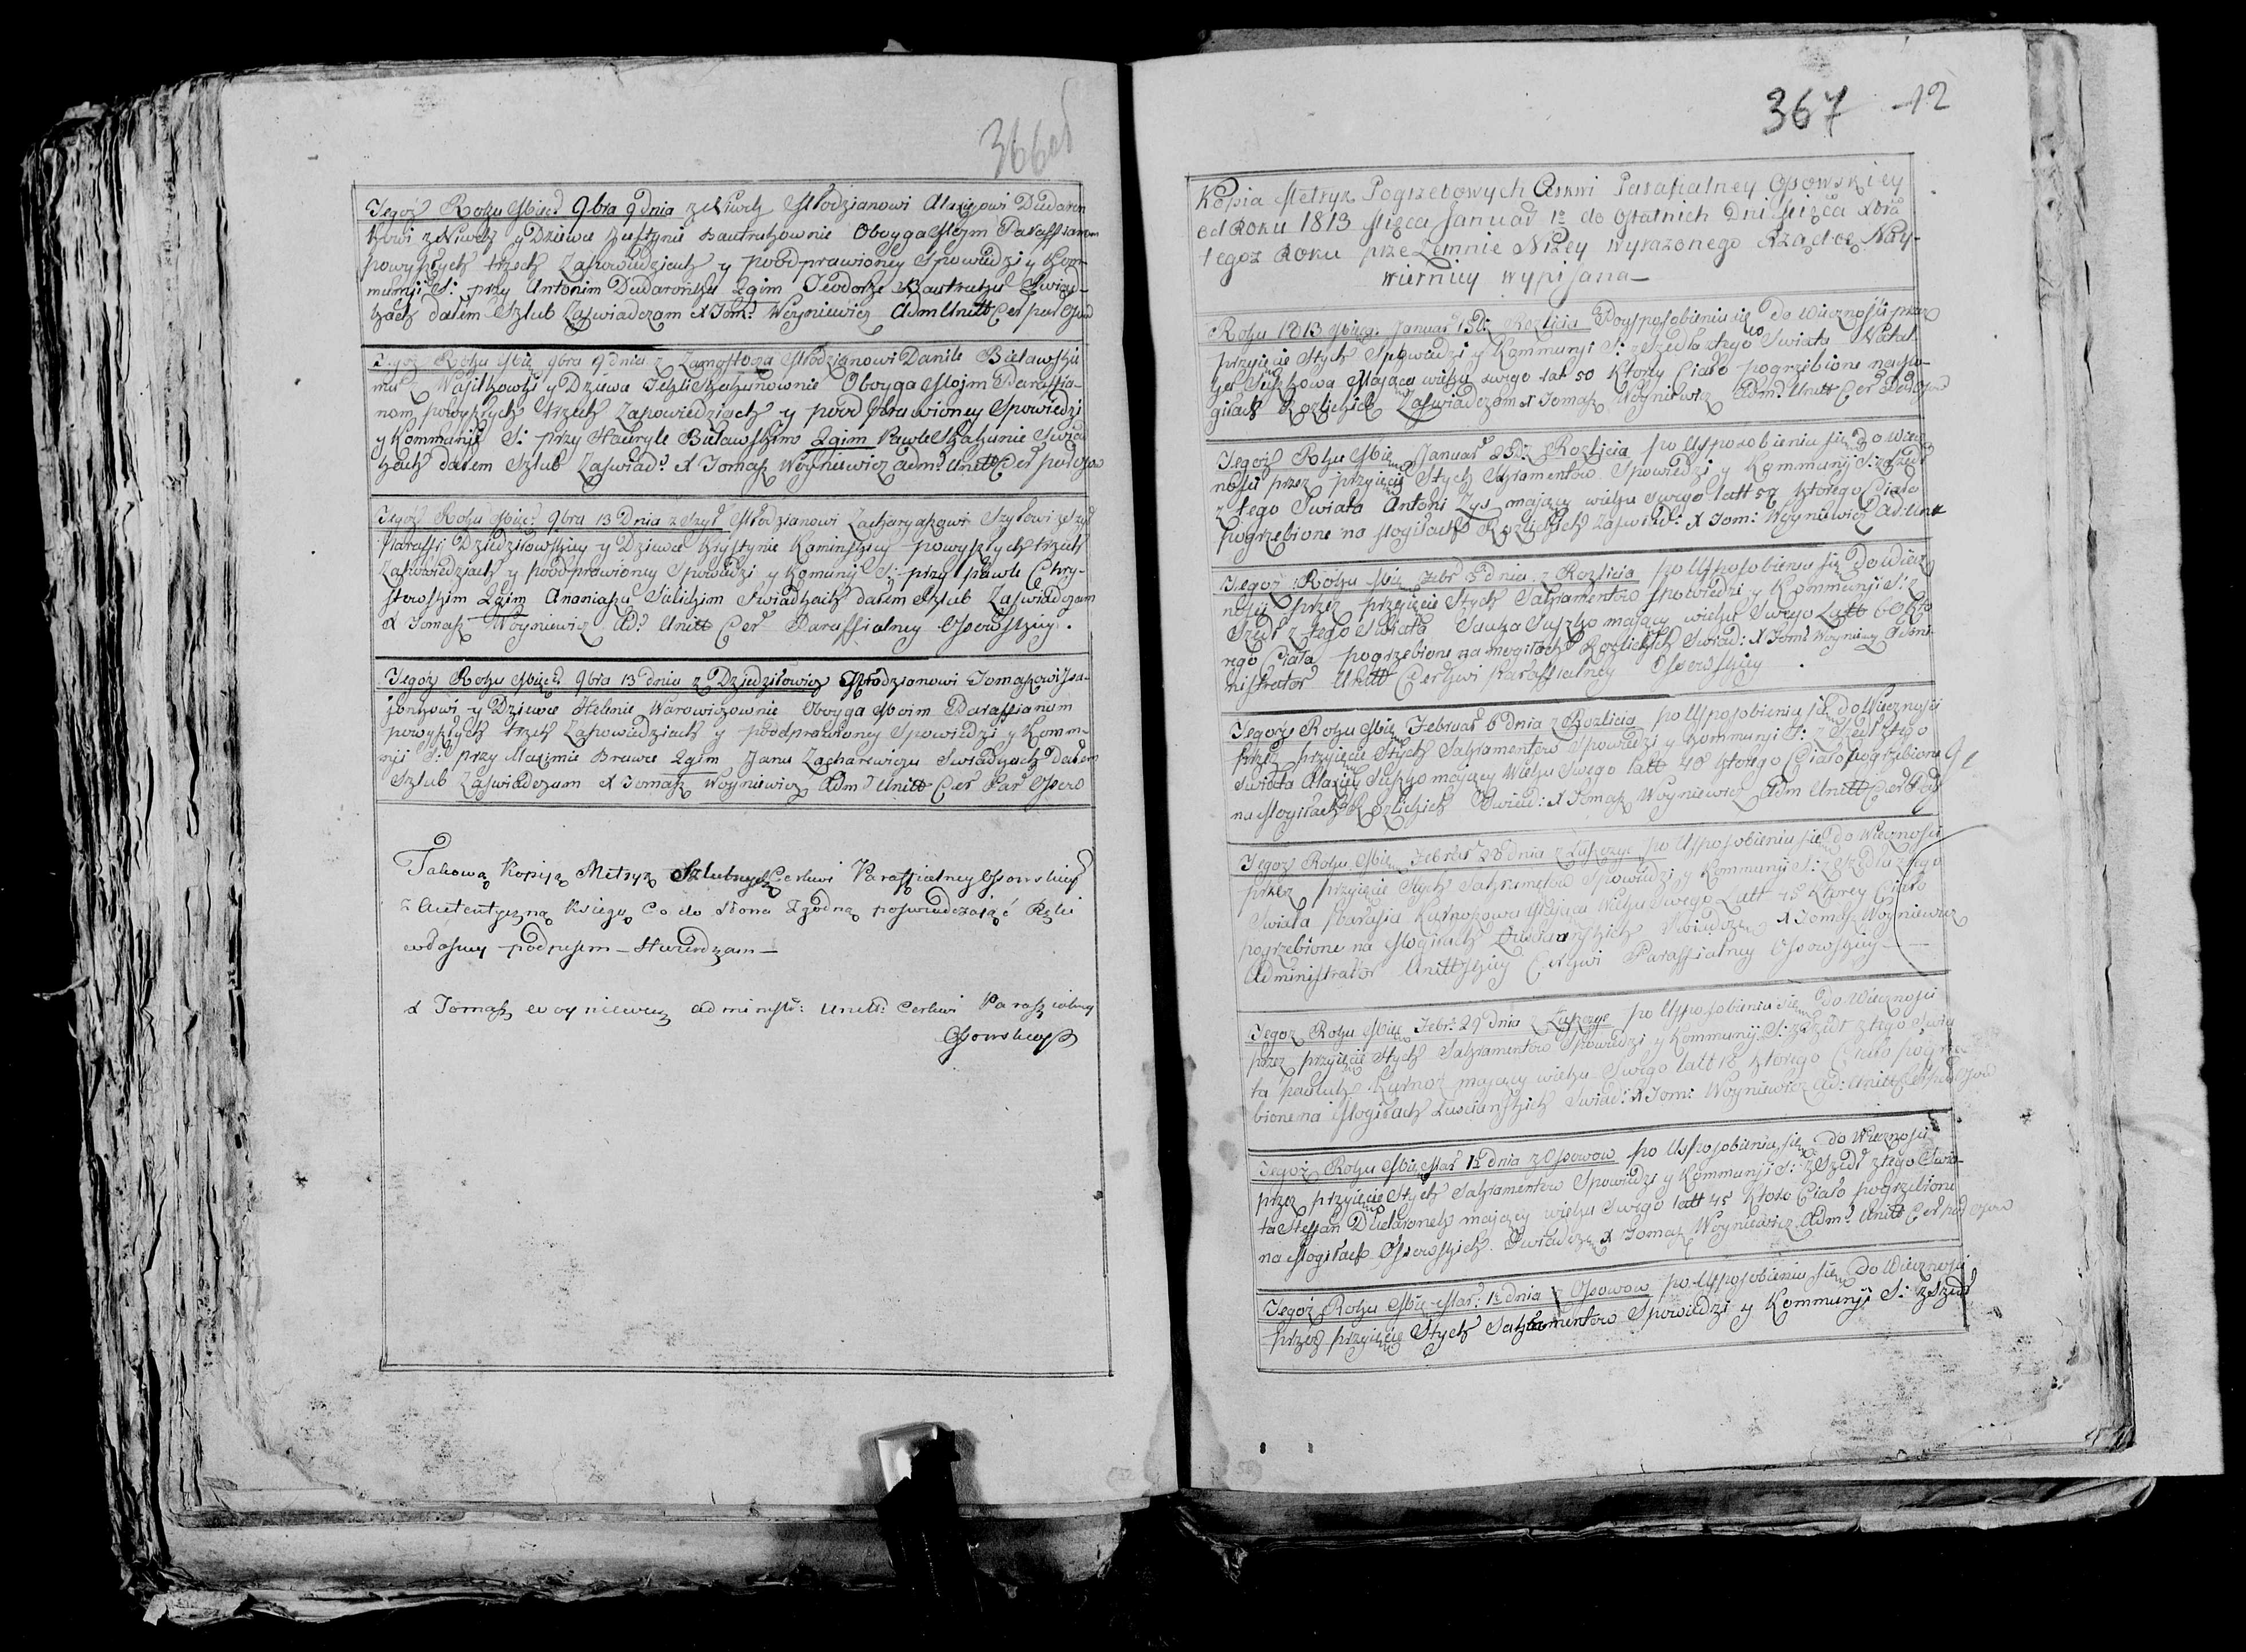 366об
Tegoż Roku Msięc 9bra 9 dnia z Niwek Młodzianowi Alaxiejowi Dudaron
kowi z Niwek y Dziewce Justynie Bautrukownie Oboyga Moim Paraffianom
powyszłych trzech Zapowiedziach y poodprawioney Spowiedzi y Kom-
munji S: przy Antonim Dudarońku 2gim Teodorze Bautruku Swiad-
kach dałem Szlub Zaswiadczam X Tom: Woyniewicz Adm Unitt Cer par Osow
Tegoż Roku Msię 9bra 9 dnia z Zamostocza Młodzianowi Danile Bielawsku
mu z Wasilkowki y Dziewce Tekli Skakunownie Oboyga Mojm Paraffia-
nom powyszłych trzech Zapowiedziach y poodprawioney Spowiedzi
y Kommunji S: przy Hauryle Bielawskim 2gim Pawle Skakunie Swiad
kach dałem Szlub Zaswiad: X Tomasz Woyniewicz Adm: Unitt Cer par Osow
Tegoż Roku Msięc 9bra 13 Dnia z Szył Młodzianowi Zacharyaszowi Szyłowi z Szył
Paraffi Dziedziłowskiey y Dziewce Krystynie Kaminskiey powyszłych trzech
Zapowiedziach y poodprawioney Spowiedzi y Komunij S: przy Pawle Chry-
stowskim 2gim Ananiaszu Salickim Swiadkach dałem Szlub Zaswiadczam
X Tomasz Woyniewicz Ad: Unitt Cer Paraffialney Osowskiey.
Tegoż Roku Msięc 9bra 13 dnia z Dziedziłowicz Młodzianowi Tomaszowi Isa-
jonkowi y Dziewce Helenie Warowiczownie Oboyga Moim Paraffianom
powyszłych trzech Zapowiedziach y poodprawioney Spowiedzi y Komm-
nji S: przy Maximie Brawce 2gim Janu Zacharewiczu Swiadkach dałem
Szlub Zaswiadczam X Tomasz Woyniewicz Adm: Unitt Cer Par Osow
Takową Kopiją Metryk Szlubnych Cerkwi Paraffialney Osowskiey
z Autentyczną Księgą Co do słowa Zgodną poswiadczając Ręki
własney podpisem Stwierdzam
X Tomasz Woyniewicz administr: Unitt: Cerkwi Paraszialney
Osowskiey
367 12
Kopia Metryk Pogrzebowych Cerkwi Parafialney Osowskiey
od Roku 1813 Mięca Januar 1o do Ostatnich Dni Mięca Xbra
tegoz Roku przezemnie Niżey Wyrazonego Rządcę Nay-
wierniey wypisana
Roku 1813 Msięca Januar 15 D: z Rozlicia Pousposobieniu się do Wieczności przez
przyjęcie Stych Spowiedzi y Kommunji S: zeszedła z tego Swiata Natal-
ya Suszkowa Mająca wieku swego lat 50 Ktorey Ciało pogrzebione na Mo-
giłach Rozlickich Zaswiadczam X Tomasz Woyniewicz Adm: Unitt Cer Par Osow
Tegoż Roku Msię Januar 25 D: z Rozlicia po Usposobieniu się do Wiecz
ności przez przyjęcie Stych Sakramentow Spowiedzi y Kommunij S: zszedł
z tego Swiata Antoni Zys mający wieku swego latt 57 ktorego Ciało
pogrzebione na Mogiłach Rozlickich Zaswiad: X Tom: Woyniewicz Ad: Unit
Tegoż Roku Msię Febr 5 dnia z Rozlicia po Usposobieniu się do Wiecz
ności przez przyjęcie Stych Sakramentow Spowiedzi y Kommunji S: z
szedł z tego Swiata Sauka Suszko mający wieku Swego Latt 60 Kto
rego Ciało pogrzebione na mogiłach Rozlickich Swiad: X Tom: Woyniewicz Admi-
nistrator Unitt Cerkwi Paraffialney Osowskiey
Tegoż Roku Msię Februar 6 dnia z Rozlicia po Usposobieniu się do Wieczności
przez przyjęcie Stych Sakramentow Spowiedzi y Kommunji S: zszedł z tego
Swiata Alaxiey Suszko mający Wieku Swego latt 40 ktorego Ciało pogrzebione
na Mogiłach Rozlickich Swiad: X Tomasz Woyniewicz Adm Unitt Cer
Tegoż Roku Msię Februar 28 dnia z Łuszczyc po Usposobieniu się do Wieczności
przez przyjęcie Stych Sakramętow Spowiedzi y Kommunij S: zeszedła z tego
Swiata Parasia Kurnoszowa Mająca Wieku Swego Latt 45 Ktorey Ciało
pogrzebione na Mogiłach Swiadcze X Tomasz Woyniewicz
Administrator Unittskiey Cerkwi Paraffialney Osowskiey
Tegoż Roku Msię Febr: 29 Dnia z Łuszczyc po Usposobieniu się do Wieczności
przez przyjęcie Stych Sakramentow Spowiedzi y Kommunij S: zszedł z tego Swia
ta Pawluk Kurnosz mający wieku Swego latt 18 Ktorego Ciało pogrze
bione na Mogiłach Łuscianskich Swiad: X Tom: Woyniewicz Ad: Unitt Cer par Osow
Tegoż Roku Msię Mar 12 dnia z Osowow po Usposobieniu się do Wieczności
przez przyjęcie Stych Sakramentow Spowiedzi y Kommunji S: zszedł z tego Swia-
ta Steffan Dudaronek mający wieku Swego latt 45 Ktoro Ciało pogrzebione
na Mogiłach Osowskich. Swiadcze X Tomasz Woyniewicz Adm: Unitt Cer par Osow
Tegoż Roku Msię Mar: 12 dnia z Osowow po Usposobieniu się do Wieczności
przez przyjęcie Stych Sakramentow Spowiedzi y Kommunji S: zszedł